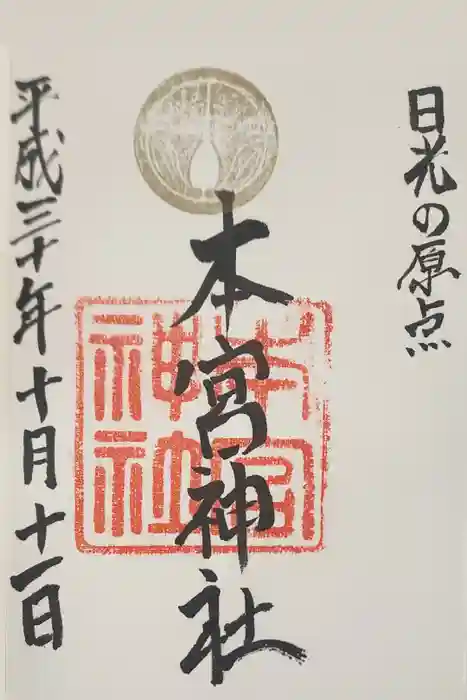 日光の原点
本宮神社
本宮神社
平成三十年十月十一日